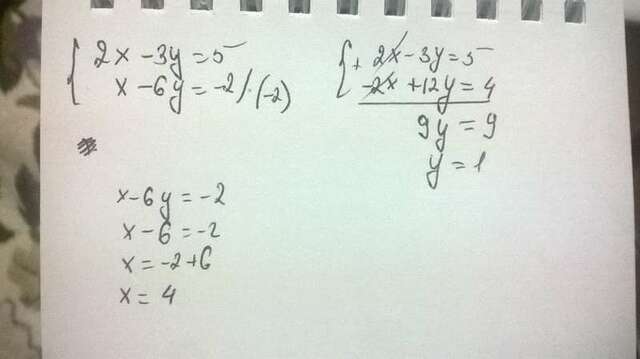 2x - 3y = 5
x - 6y = -2 / · (-2)
+ 2x - 3y = 5
-2x + 12y = 4
9y = 9
y = 1
x - 6y = -2
x - 6 = -2
x = -2 + 6
x = 4